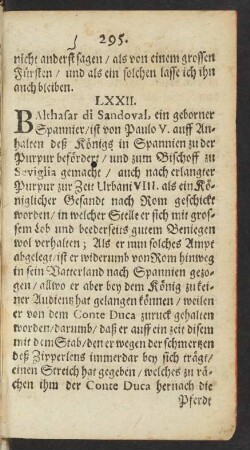 295.
nicht anderst sagen / als von einem grossen
Fürsten / und als ein solchen lasse ich ihn
auch bleiben.
LXXII.
BAlthasar di Sandoval, ein geborner
Spannier / ist von Paulo V. auff An-
halten deß Königs in Spannien zu der
Purpur befördert / und zum Bischoff zu
Seviglia gemacht / auch nach erlangter
Purpur zur Zeit Urbani VIII. als ein Kö-
niglicher Gesandt nach Rom geschickt
worden / in welcher Stelle er sich mit gros-
sem Lob und beederseits gutem Beniegen
wol verhalten; Als er nun solches Ampt
abgelegt / ist er widerumb von Rom hinweg
in sein Vatterland nach Spannien gezo-
gen / allwo er aber bey dem König zu kei-
ner Audientz hat gelangen können / weilen
er von dem Conte Duca zuruck gehalten
worden / darumb / daß er auff ein zeit disem
mit dem Stab / den er wegen der schmertzen
deß Zipperlens immerdar bey sich trägt /
einen Streich hat gegeben / welches zu rä-
chen ihm der Conte Duca hernach die
Pferdt